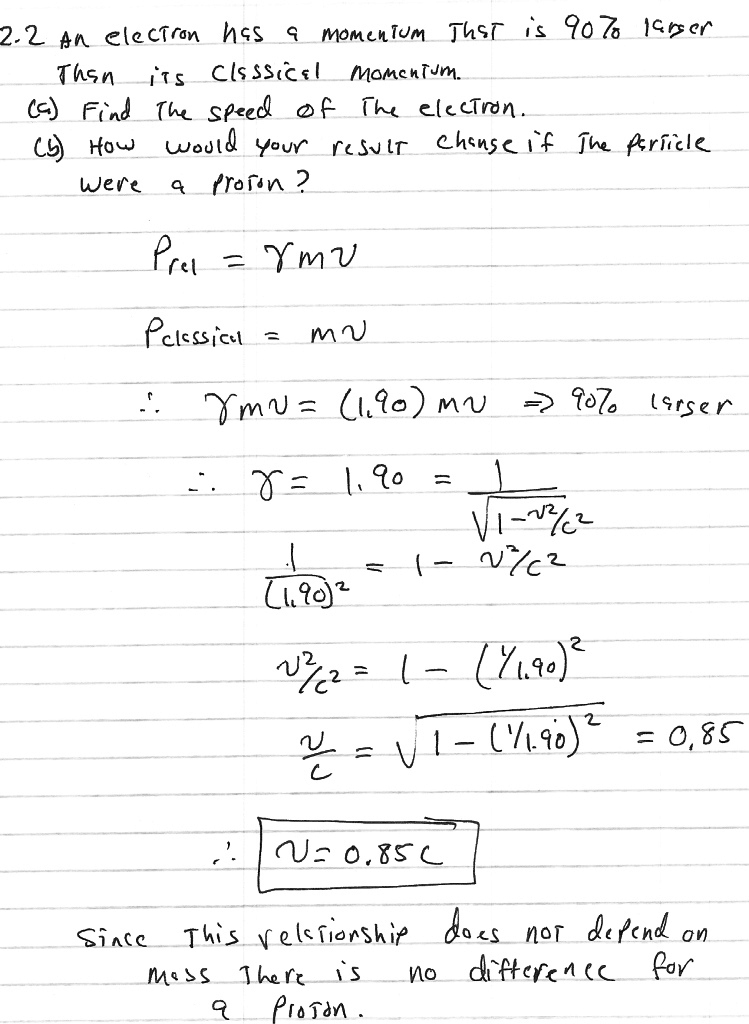 2.2 An electron has a momentum that is 90% larger
than its classical momentum.
(a) Find the speed of the electron.
(b) How would your result change if the particle
were a proton?
Prel = γmv
Pclassical = mv
∴ γmv = (1.90) mv ⇒ 90% larger
∴ γ = 1.90 = 1/√(1-v²/c²)
1/(1.90)² = 1 - v²/c²
v²/c² = 1 - (1/1.90)²
v/c = √(1 - (1/1.90)²) = 0.85
∴ v = 0.85c
Since this relationship does not depend on
mass there is no difference for
a proton.